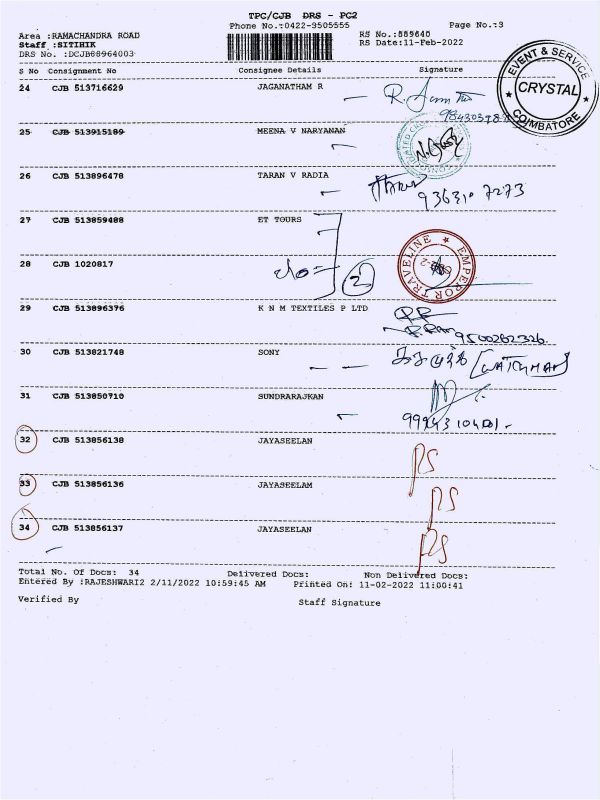 TPC/CJB DRS - PC2
Phone No.:0422-3505555
Page No.:3
Area :RAMACHANDRA ROAD
RS No.:889640
Staff :SITIHIK
RS Date:11-Feb-2022
DRS No. :DCJB88964003
S No Consignment No Consignee Details Signature
EVENT & SERVICE
CRYSTAL
COIMBATORE
24 CJB 513716629 JAGANATHAM R
25 CJB 513915189 MEENA V NARYANAN
26 CJB 513896478 TARAN V RADIA
936310 7273
27 CJB 513859488 ET TOURS
28 CJB 1020817
2
EMPEROR TRAVELINE
29 CJB 513896376 K N M TEXTILES P LTD
9500262326
30 CJB 513821748 SONY
[WATCHMAN]
31 CJB 513850710 SUNDRARAJKAN
32 CJB 513856138 JAYASEELAN
RS
33 CJB 513856136 JAYASEELAM
RS
34 CJB 513856137 JAYASEELAN
RS
Total No. Of Docs: 34 Delivered Docs: Non Delivered Docs:
Entered By :RAJESHWARI2 2/11/2022 10:59:45 AM Printed On: 11-02-2022 11:00:41
Verified By Staff Signature